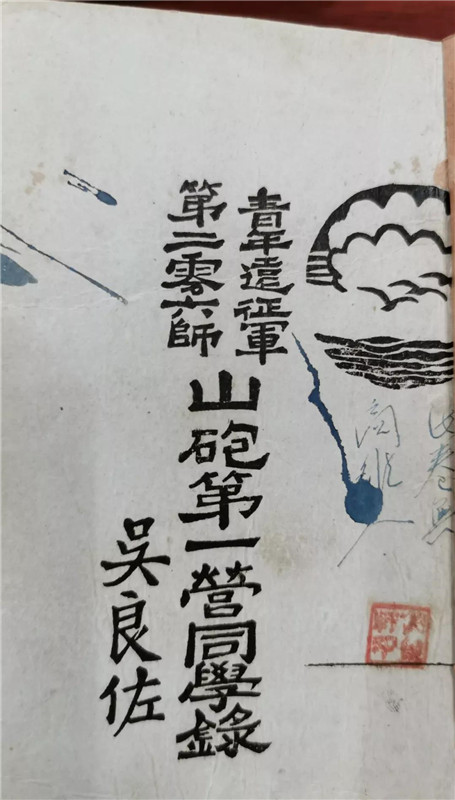 青年遠征軍
第二零六師
山砲第一營同學錄
吳良佐